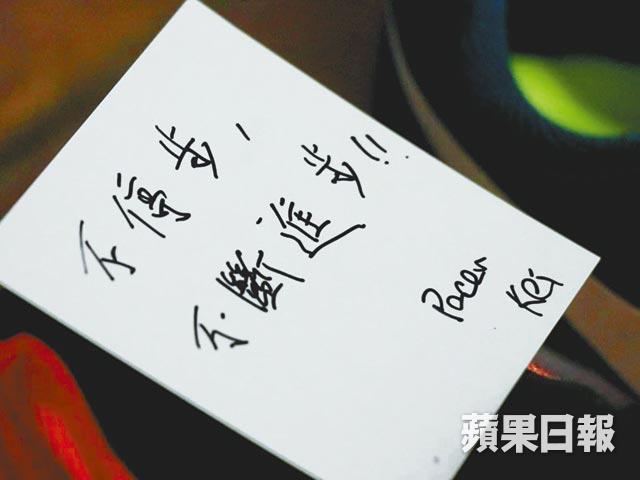 不停步，
不斷進步!!
Pacer
Kei
蘋果日報